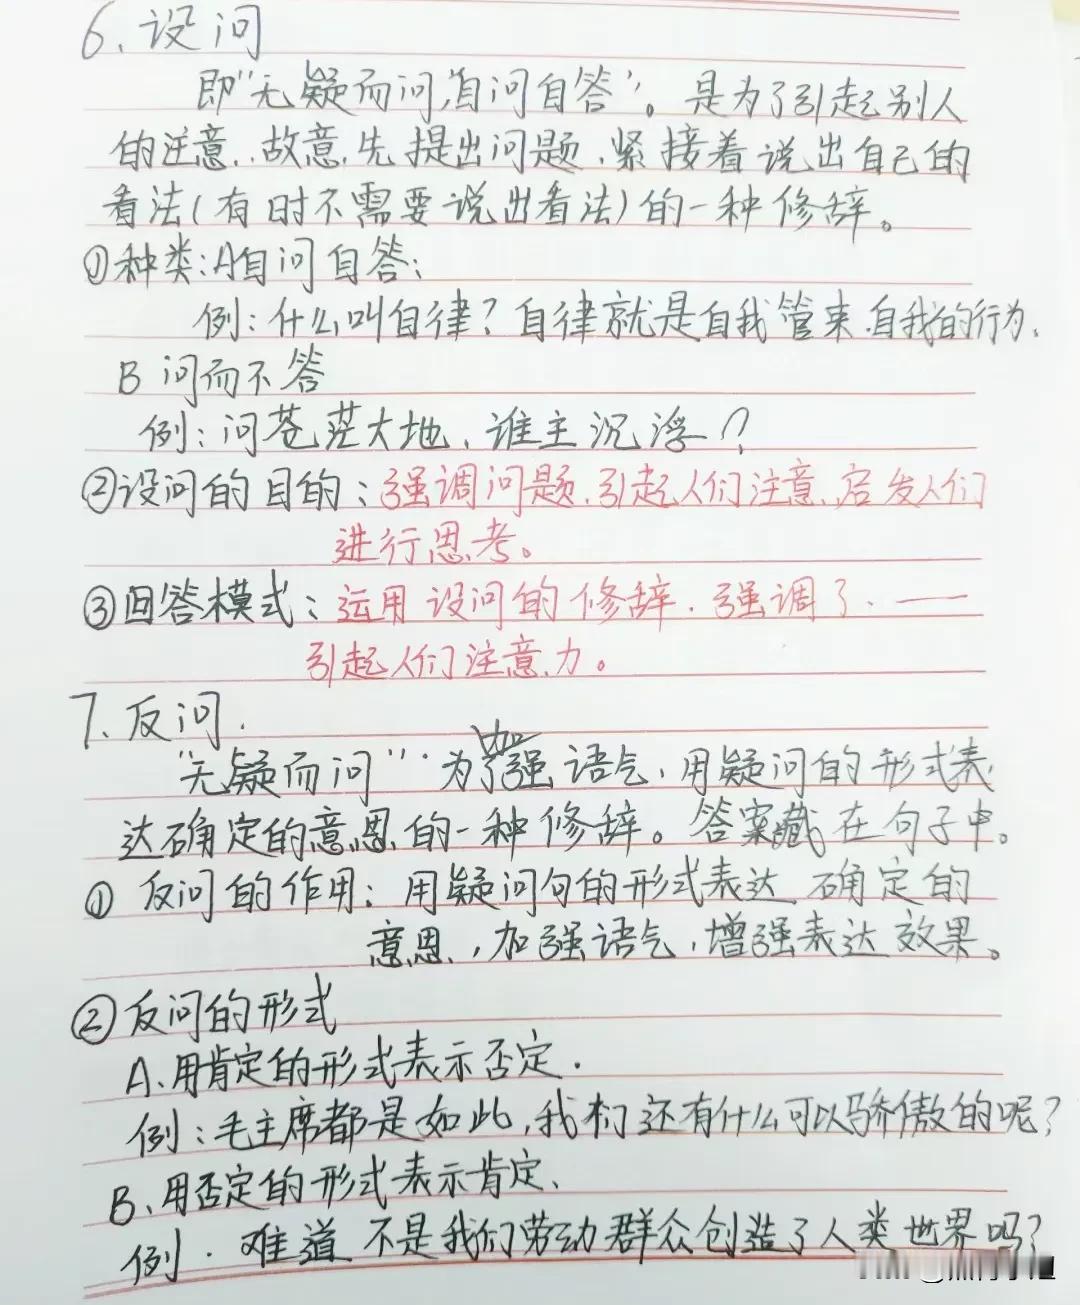 6、设问
即"无疑而问,自问自答"。是为了引起别人
的注意、故意先提出问题、紧接着说出自己的
看法(有时不需要说出看法)的一种修辞。
①种类:A自问自答:
例:什么叫自律?自律就是自我管束.自我的行为.
B 问而不答
例:问苍茫大地、谁主沉浮?
②设问的目的:强调问题、引起人们注意、启发人们
进行思考。
③回答模式:运用设问的修辞.强调了.——
引起人们注意力。
7.反问.
"无疑而问"·为了加强语气,用疑问的形式表
达确定的意思的一种修辞。答案藏在句子中。
① 反问的作用:用疑问句的形式表达确定的
意思,加强语气,增强表达效果。
②反问的形式
A、用肯定的形式表示否定.
例:毛主席都是如此,我们还有什么可以骄傲的呢?
B、用否定的形式表示肯定、
例.难道不是我们劳动群众创造了人类世界吗?